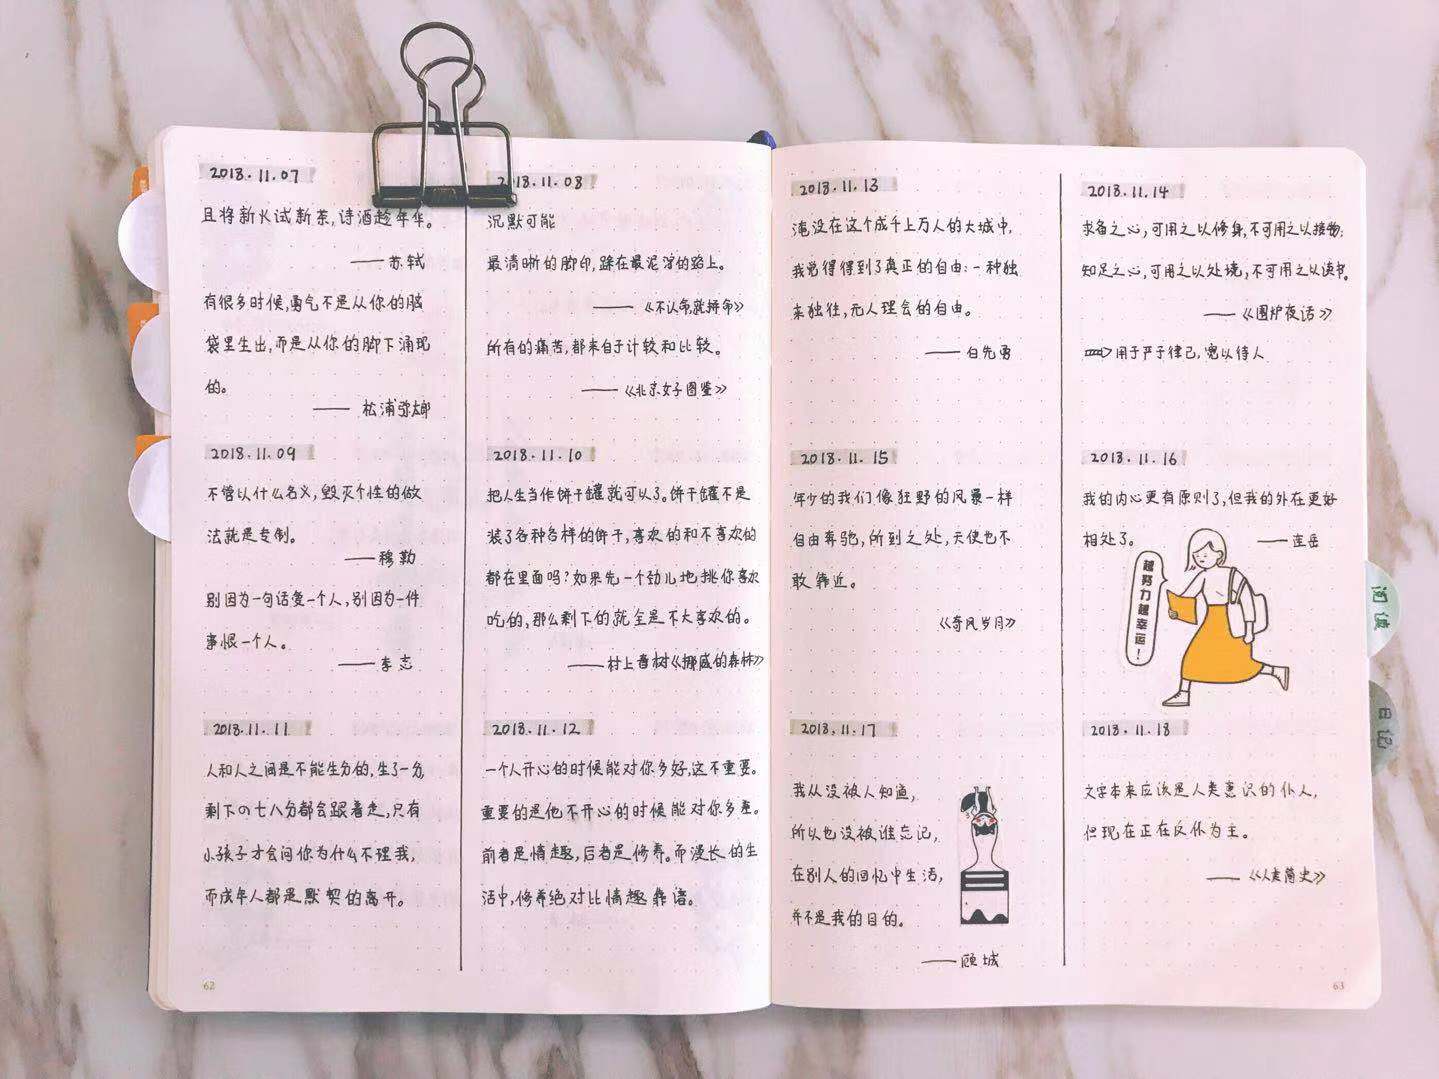 2018.11.07
且将新火试新茶,诗酒趁年华。
——苏轼
有很多时候,勇气不是从你的脑
袋里生出,而是从你的脚下涌现
的。
——松浦弥太郎
2018.11.08
沉默可能
最清晰的脚印,踩在最泥泞的路上。
——《不认命,就拼命》
所有的痛苦,都来自于计较和比较。
——《北京女子图鉴》
2018.11.09
不管以什么名义,毁灭个性的做
法就是专制。
——穆勒
别因为一句话爱一个人,别因为一件
事恨一个人。
——李志
2018.11.10
把人生当作饼干罐就可以了。饼干罐不是
装了各种各样的饼干,喜欢的和不喜欢的
都在里面吗?如果先一个劲儿地挑你喜欢
吃的,那么剩下的就全是不大喜欢的。
——村上春树《挪威的森林》
2018.11.11
人和人之间是不能生分的,生了一分,
剩下の七八分都会跟着走,只有
小孩子才会问你为什么不理我,
而成年人都是默契的离开。
2018.11.12
一个人开心的时候能对你多好,这不重要。
重要的是他不开心的时候能对你多差。
前者是情趣,后者是修养。而漫长的生
活中,修养绝对比情趣靠谱。
62
2018.11.13
淹没在这个成千上万人的大城中,
我觉得得到了真正的自由:一种独
来独往,无人理会的自由。
——白先勇
2018.11.14
求备之心,可用之以修身,不可用之以接物;
知足之心,可用之以处境,不可用之以读书。
——《围炉夜话》
用于严于律己,宽以待人
2018.11.15
年少的我们像狂野的风暴一样
自由奔驰,所到之处,天使也不
敢靠近。
《奇风岁月》
2018.11.16
我的内心更有原则了,但我的外在更好
相处了。
——连岳
越努力越幸运!
2018.11.17
我从没被人知道,
所以也没被谁忘记,
在别人的回忆中生活,
并不是我的目的。
——顾城
2018.11.18
文字本来应该是人类意识的仆人,
但现在正在反仆为主。
——《人类简史》
63
阅读
日记